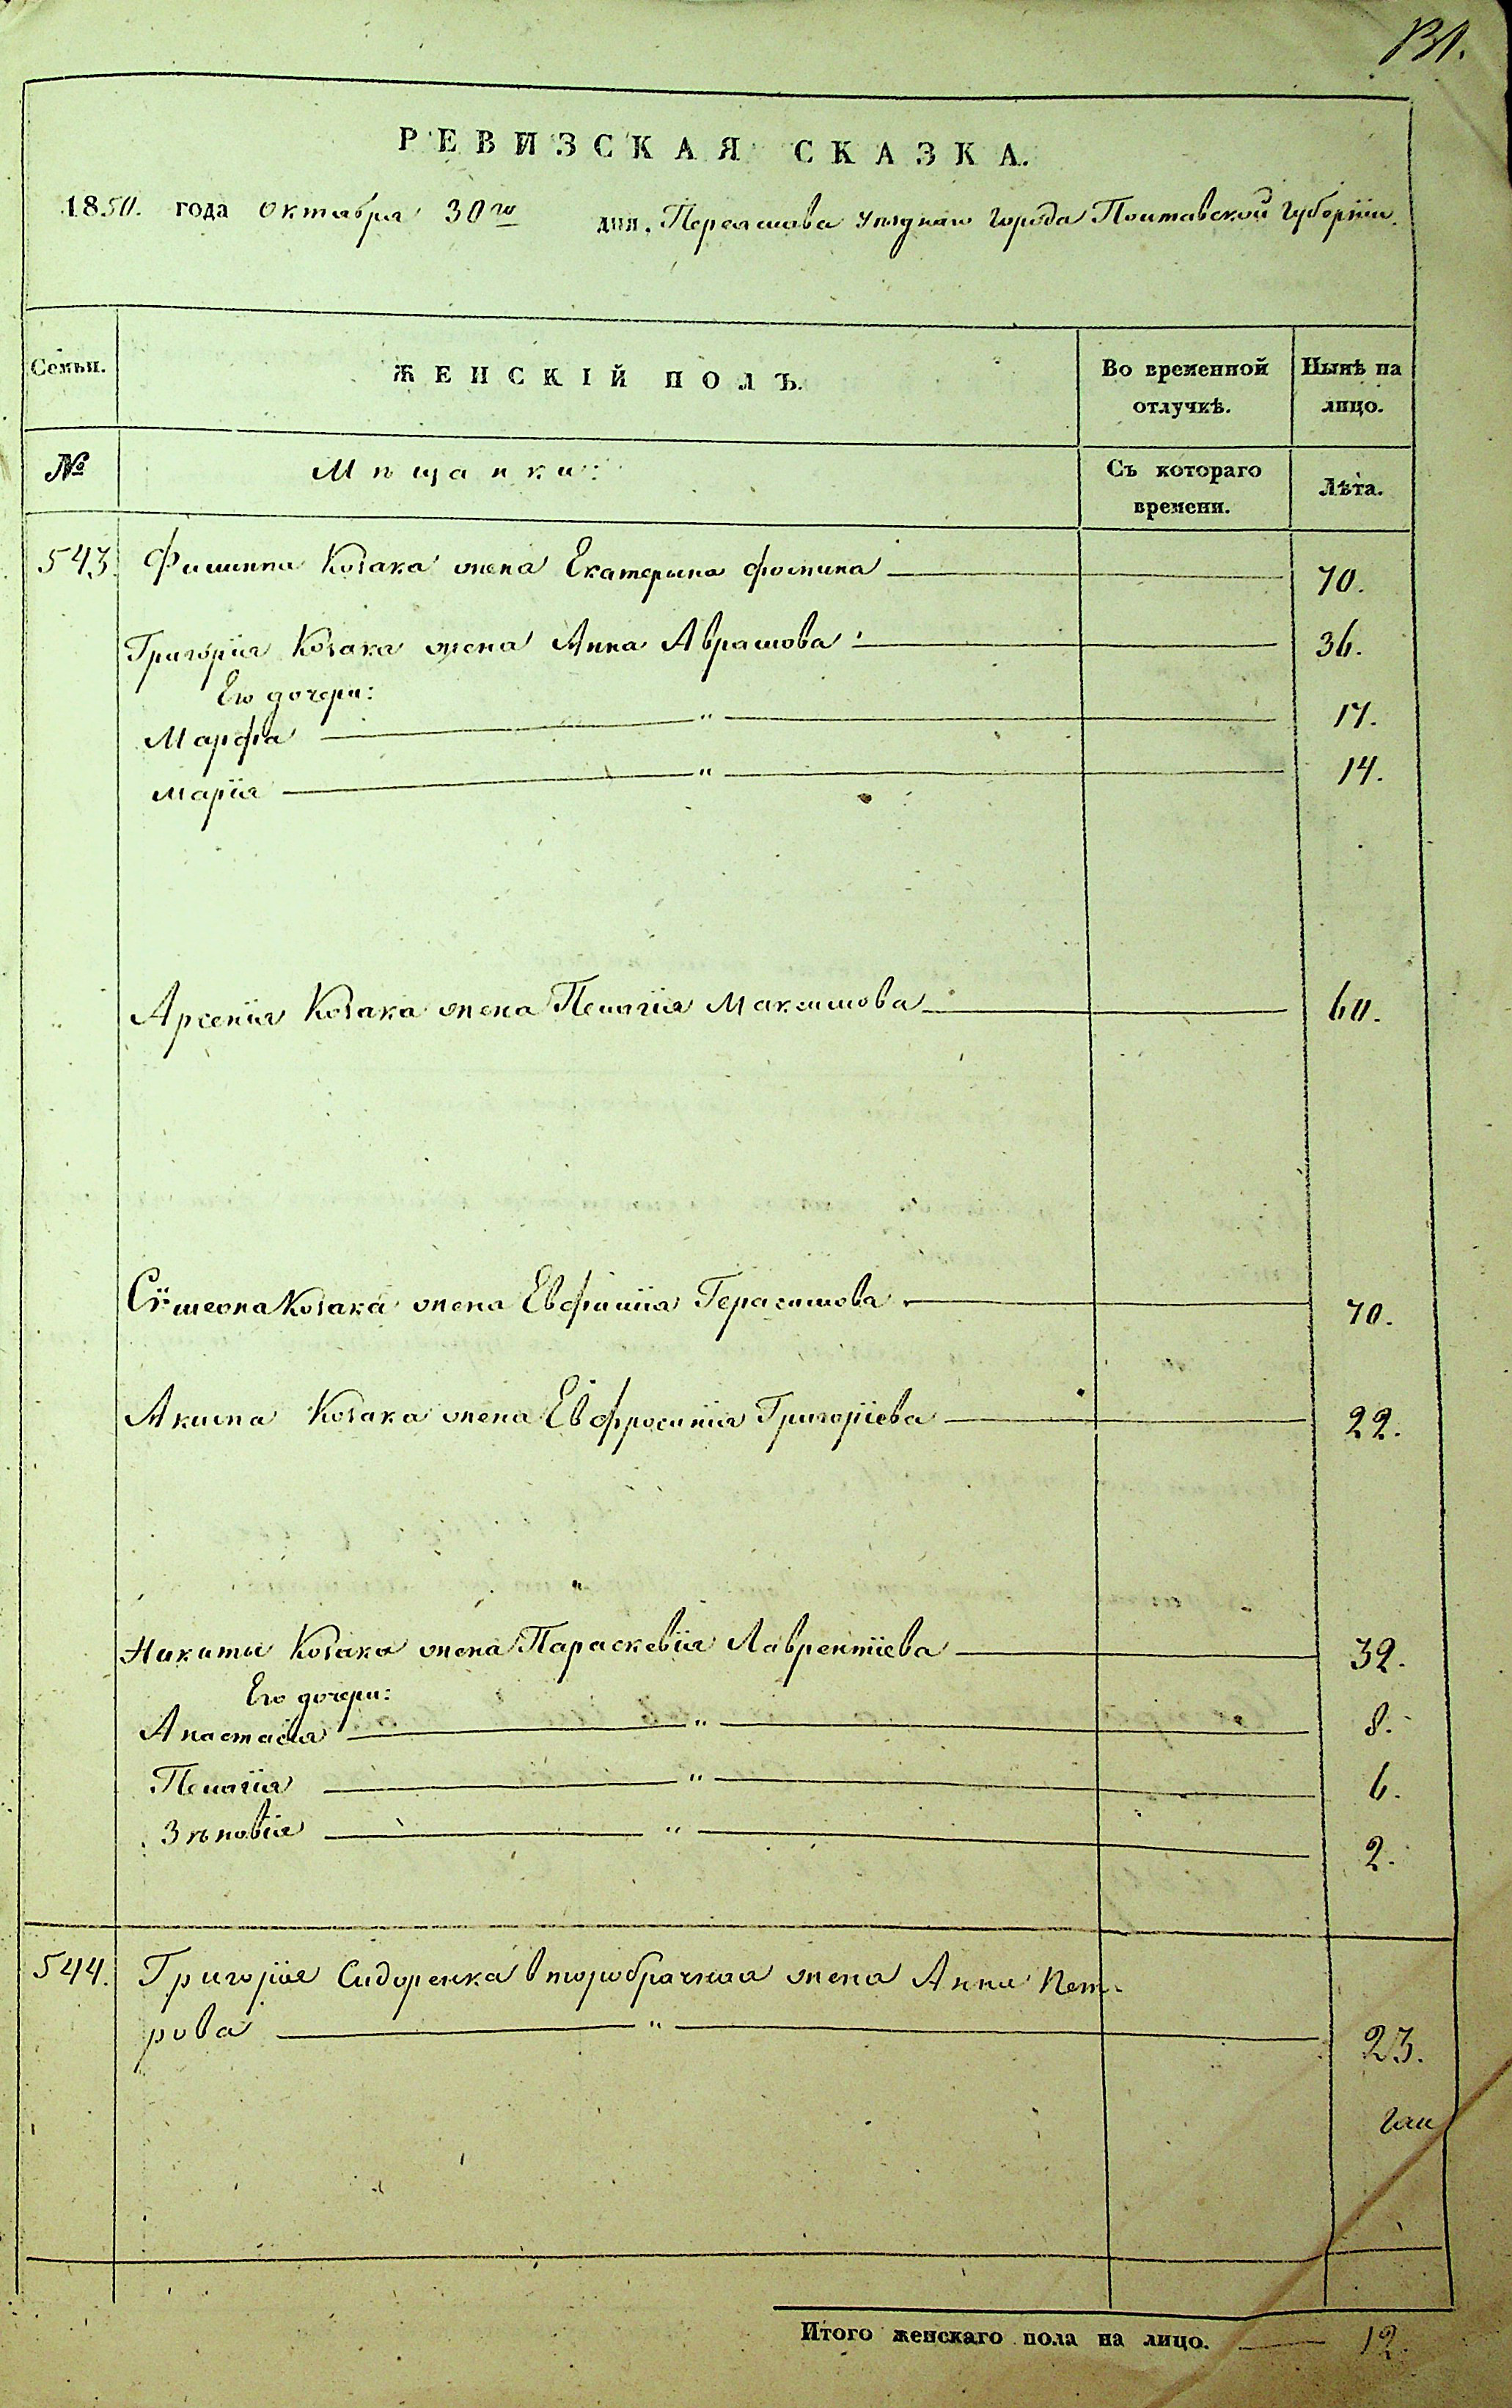 РЕВИЗСКАЯ СКАЗКА.
1850. года октября 30го дня. Переяслова уѣзднаго города Полтавской губерніи.
Семьи. ЖЕНСКІЙ ПОЛЪ. Во временной отлучкѣ. Нынѣ на лицо.
№ Мѣщанки: Съ котораго времени. Лѣта.
543. Филиппа Козака жена Екатерина Фомина 70.
Григорія Козака жена Анна Аврамова 36.
Его дочери:
Марфа " 17.
Марія " 14.
Арсенія Козака жена Пелагія Максимова 60.
Сѵмеона Козака жена Евфимія Герасимова 70.
Акима Козака жена Евфросинія Григоріева 22.
Никиты Козака жена Параскевія Лаврентіева 32.
Его дочери:
Анастасія " 8.
Пелагія " 6.
Зѣновія " 2.
544. Григорія Сидоренка второбрачная жена Анна Пет-
рова " 23.
Итого женскаго пола на лицо. 12.